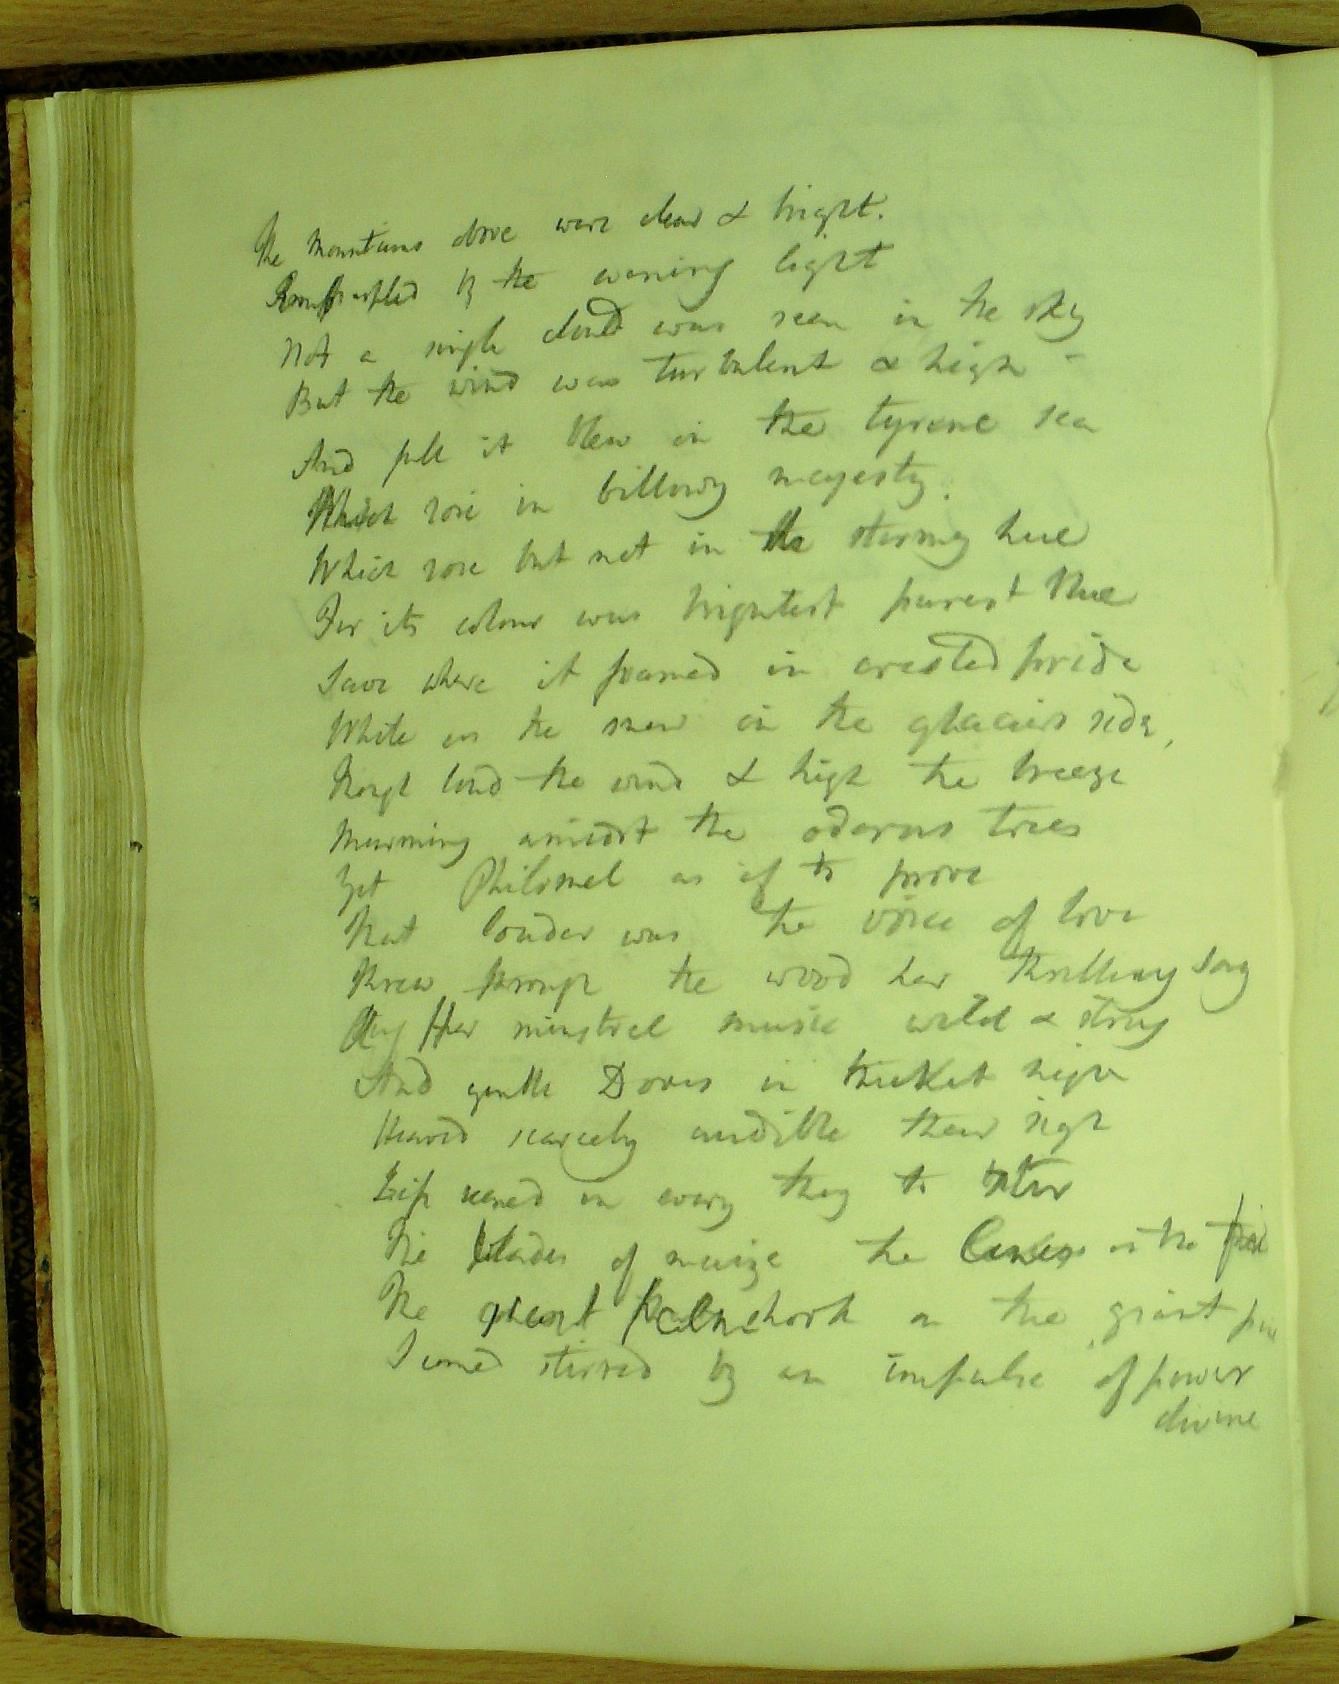 The Mountains above were clear & bright.
by the evening light
Not a single cloud was seen in the sky
But the wind was turbulent & high -
And full it blew on the tyrene sea
Which rose in billowy majesty.
Which rose but not in the stormy hue
For its colour was brightest purest blue
Save where it foamed in crested pride
White as the snow on the glaciers side,
Though loud the wind & high the breeze
Murming amidst the odorus trees
Yet Philomel as if to prove
That louder was the voice of love
Threw through the wood her thrilling song
Her minstrel music wild & strong
And gentle Doves in thicket nigh
Heaved scarcely audible their sigh
Life seemed in every thing to
The blades of maize the on the
The giant or the giant
Seemed stirred by an impulse of power
divine